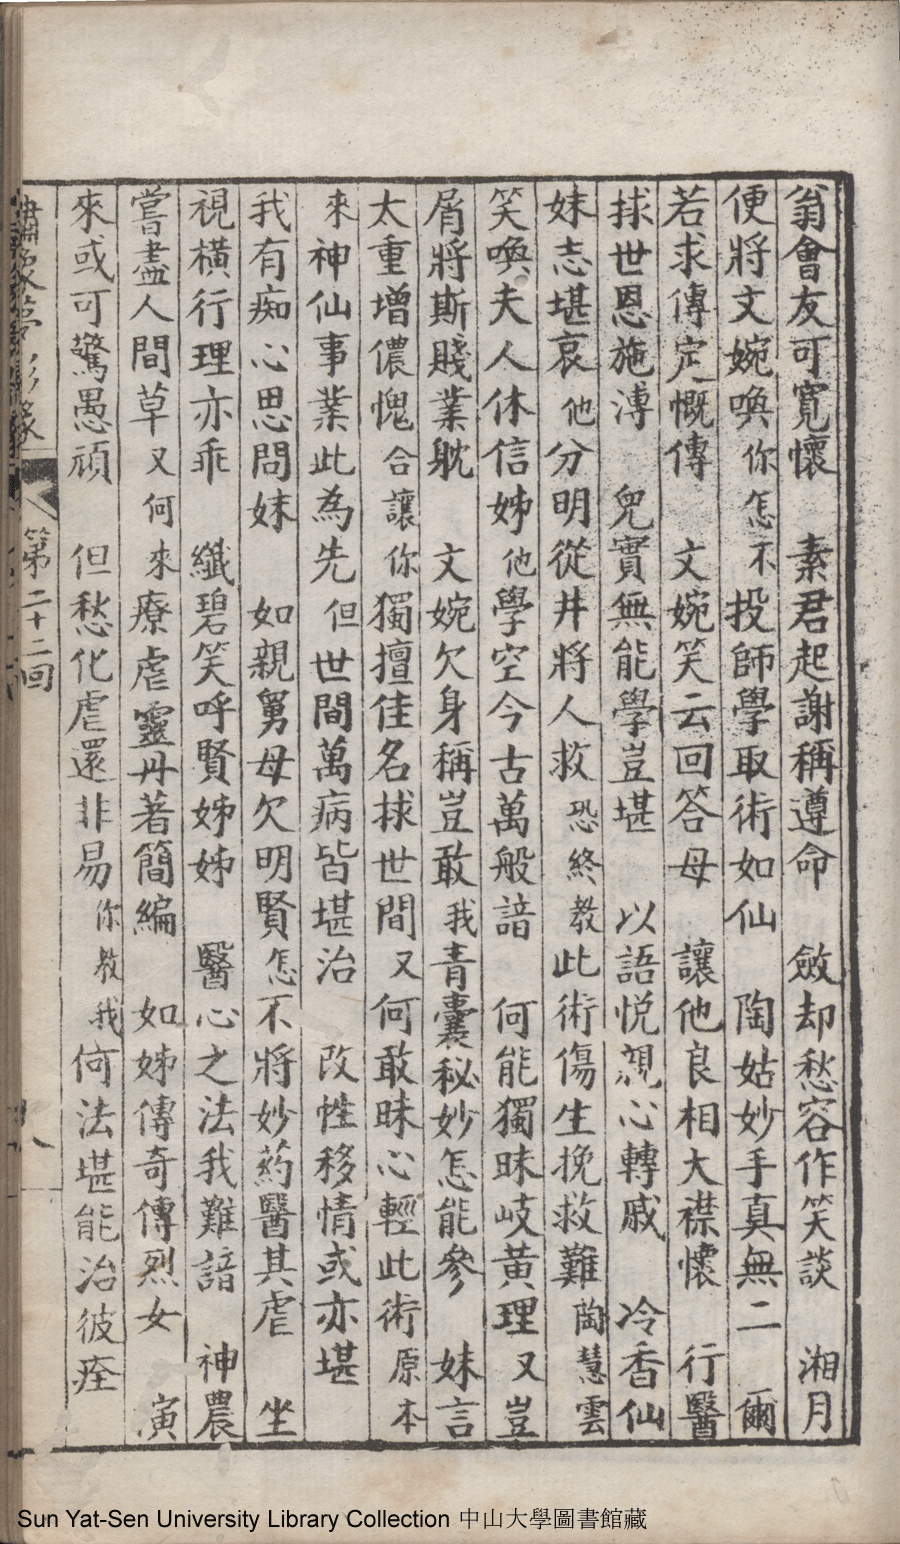 翁會友可寬懷　素君起謝稱遵命　斂却愁容作笑談　湘月
便將文婉喚你怎不投師學取術如仙　陶姑妙手真無二　爾
若求傳定慨傳　文婉笑云回答母　讓他良相大襟懷　行醫
捄世恩施溥　兒實無能學豈堪　以語悅親心轉戚　冷香仙
妹志堪哀他分明從井將人救恐終教此術傷生挽救難陶慧雲
笑喚夫人休信姊他學空今古萬般諳　何能獨昧岐黃理又豈
屑將斯賤業躭　文婉欠身稱豈敢我青囊秘妙怎能參　妹言
太重增儂愧合讓你獨擅佳名捄世間又何敢昧心輕此術原本
來神仙事業此為先但世間萬病皆堪治　改性移情或亦堪
我有痴心思問妹　如親舅母欠明賢怎不將妙葯醫其虐　坐
視橫行理亦乖　纖碧笑呼賢姊姊　醫心之法我難諳　神農
嘗盡人間草又何來療虐靈丹著簡編　如姊傳奇傳烈女　演
來或可驚愚頑　但愁化虐還非易你教我何法堪能治彼痊
第二十二回
Sun Yat-Sen University Library Collection 中山大學圖書館藏